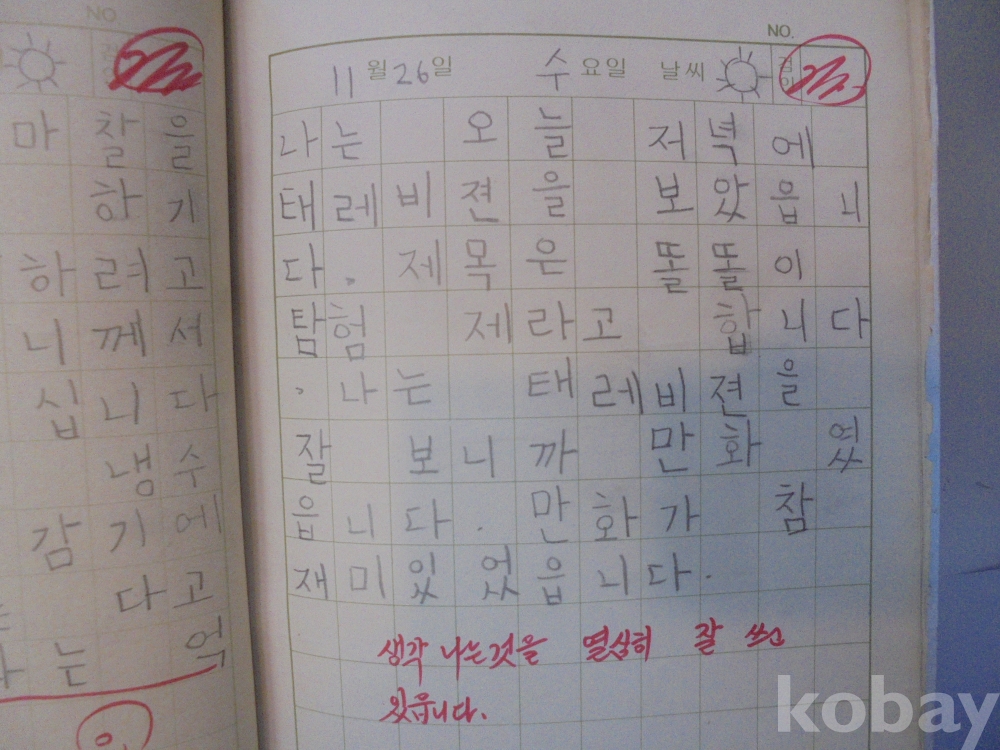 NO
마 찰 을
하 기
하 려 고
니 께 서
십 니 다
냉 수
감 기 에
다 고
는 억
NO.
11월 26일 수요일 날씨
나는 오늘 저녁에
태레비젼을 보았읍니
다. 제목은 똘똘이
탐험 제라고 합니다
. 나는 태레비젼을
잘 보니까 만화 었
읍니다. 만화가 참
재미있었읍니다.
생각나는것을 열심히 잘 쓰고
있읍니다.
kobay